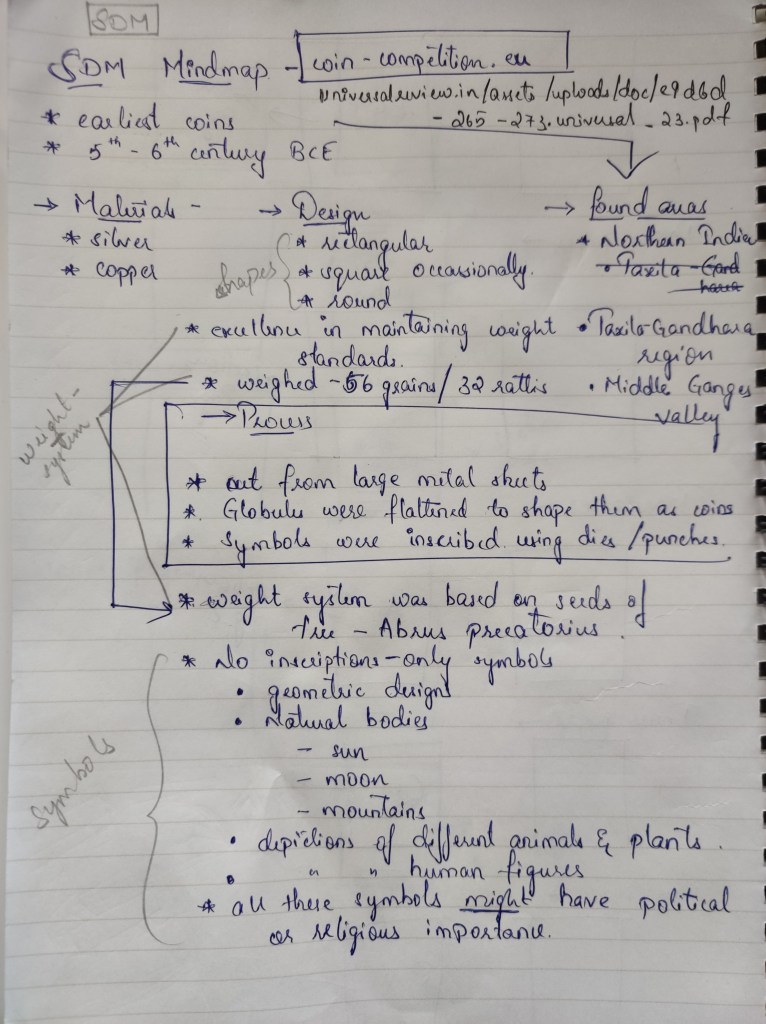 SDM
SDM Mindmap - coin-competition.eu
universalreview.in/assets/uploads/doc/e9d6d
- 265 - 273.universal_23.pdf
* earliest coins
* 5th - 6th century BCE
→ Materials -
* silver
* copper
→ Design
shapes
* rectangular
* square occassionally.
* round
→ found areas
* Northern India
• Taxila - Gand
hara
• Taxila-Gandhara
region
• Middle Ganges
valley
weight-
system
* excellence in maintaining weight
standards.
* weighed - 56 grains / 32 rattis
→ Process
* cut from large metal sheets
* Globules were flattened to shape them as coins
* Symbols were inscribed using dies / punches.
* weight system was based on seeds of
tree - Abrus precatorius.
Symbols
* No inscriptions - only symbols
• geometric designs
• Natural bodies
- sun
- moon
- mountains
• depictions of different animals & plants.
• " " human figures
* all these symbols might have political
or religious importance.